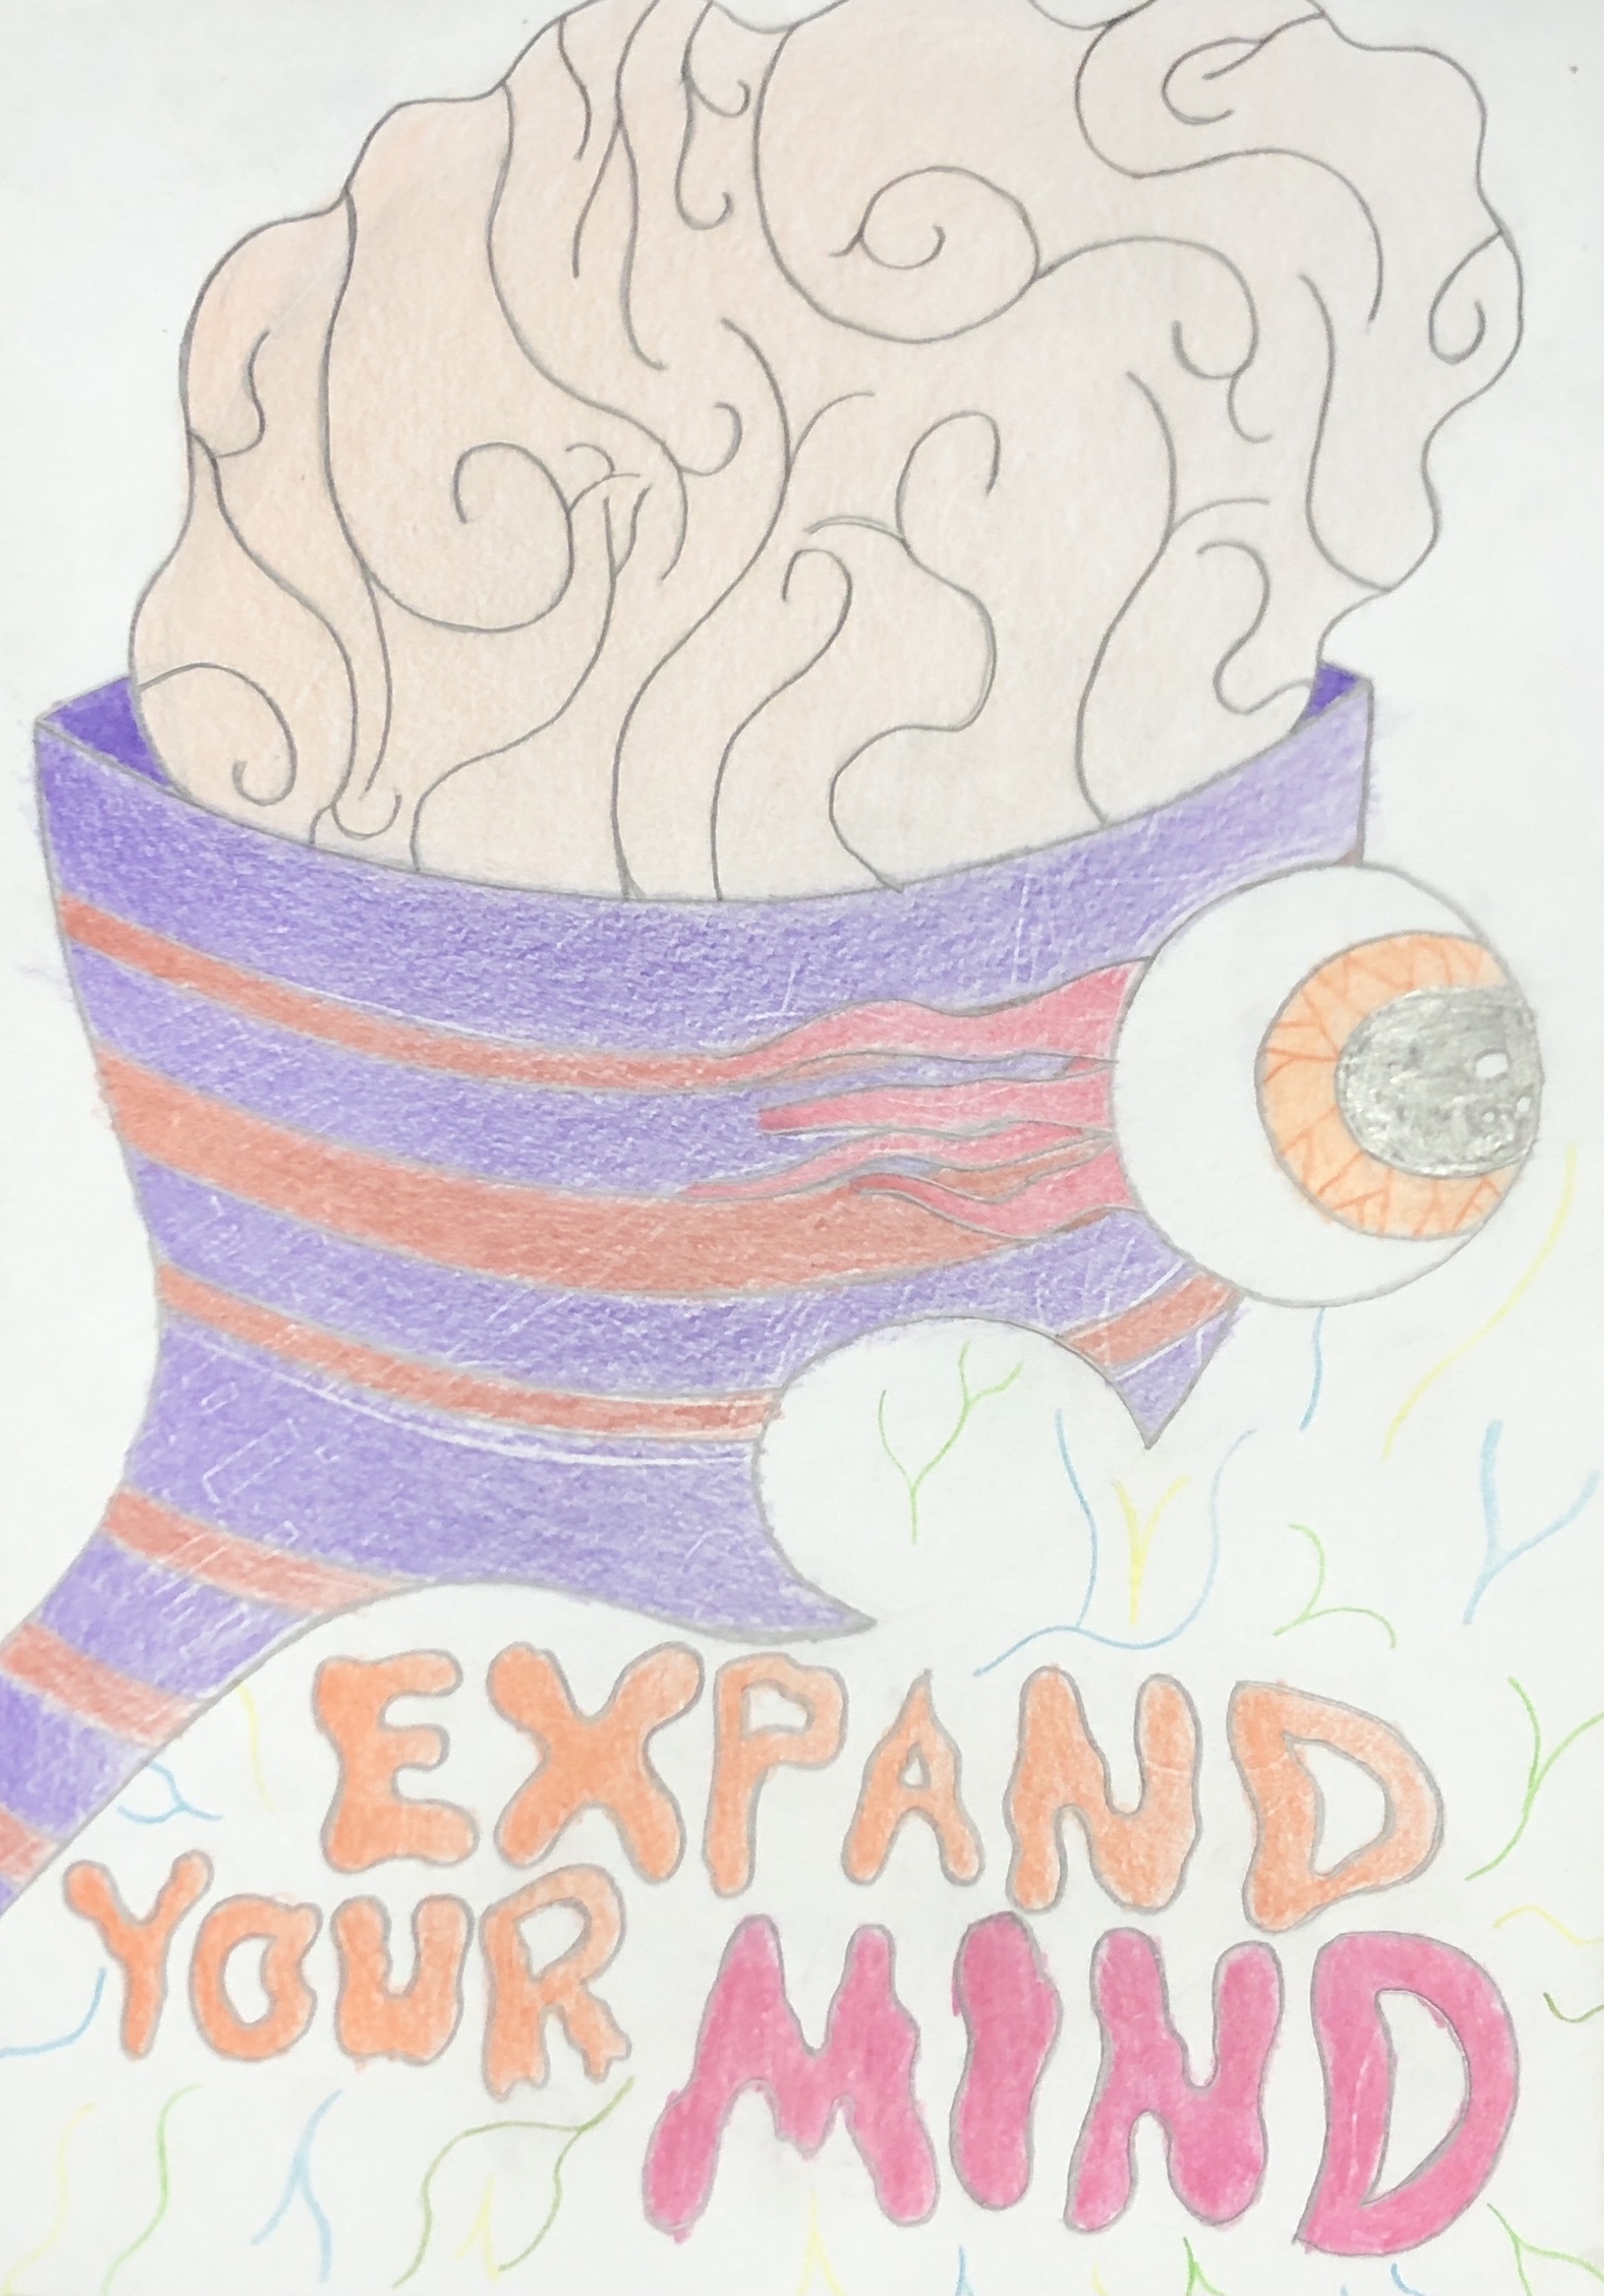 EXPAND
YOUR MIND